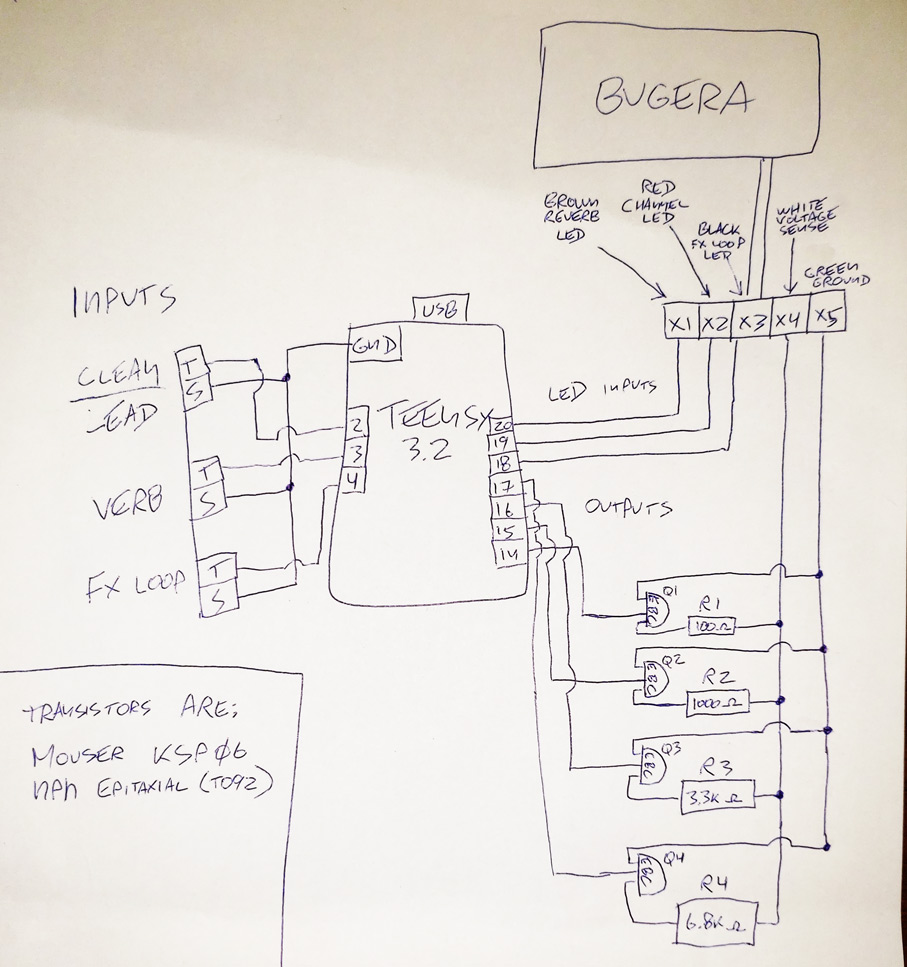 BUGERA
BROWN
REVERB
LED
RED
CHANNEL
LED
BLACK
FX LOOP
LED
WHITE
VOLTAGE
SENSE
GREEN
GROUND
X1 X2 X3 X4 X5
INPUTS
USB
GND
CLEAN
LEAD
T
S
VERB
T
S
FX LOOP
T
S
2
3
4
TEENSY
3.2
20
19
18
17
16
15
14
LED INPUTS
OUTPUTS
Q1
EBC
R1
100Ω
Q2
EBC
R2
1000Ω
Q3
EBC
R3
3.3KΩ
Q4
EBC
R4
6.8KΩ
TRANSISTORS ARE;
MOUSER KSPØ6
NPN EPITAXIAL (TO92)